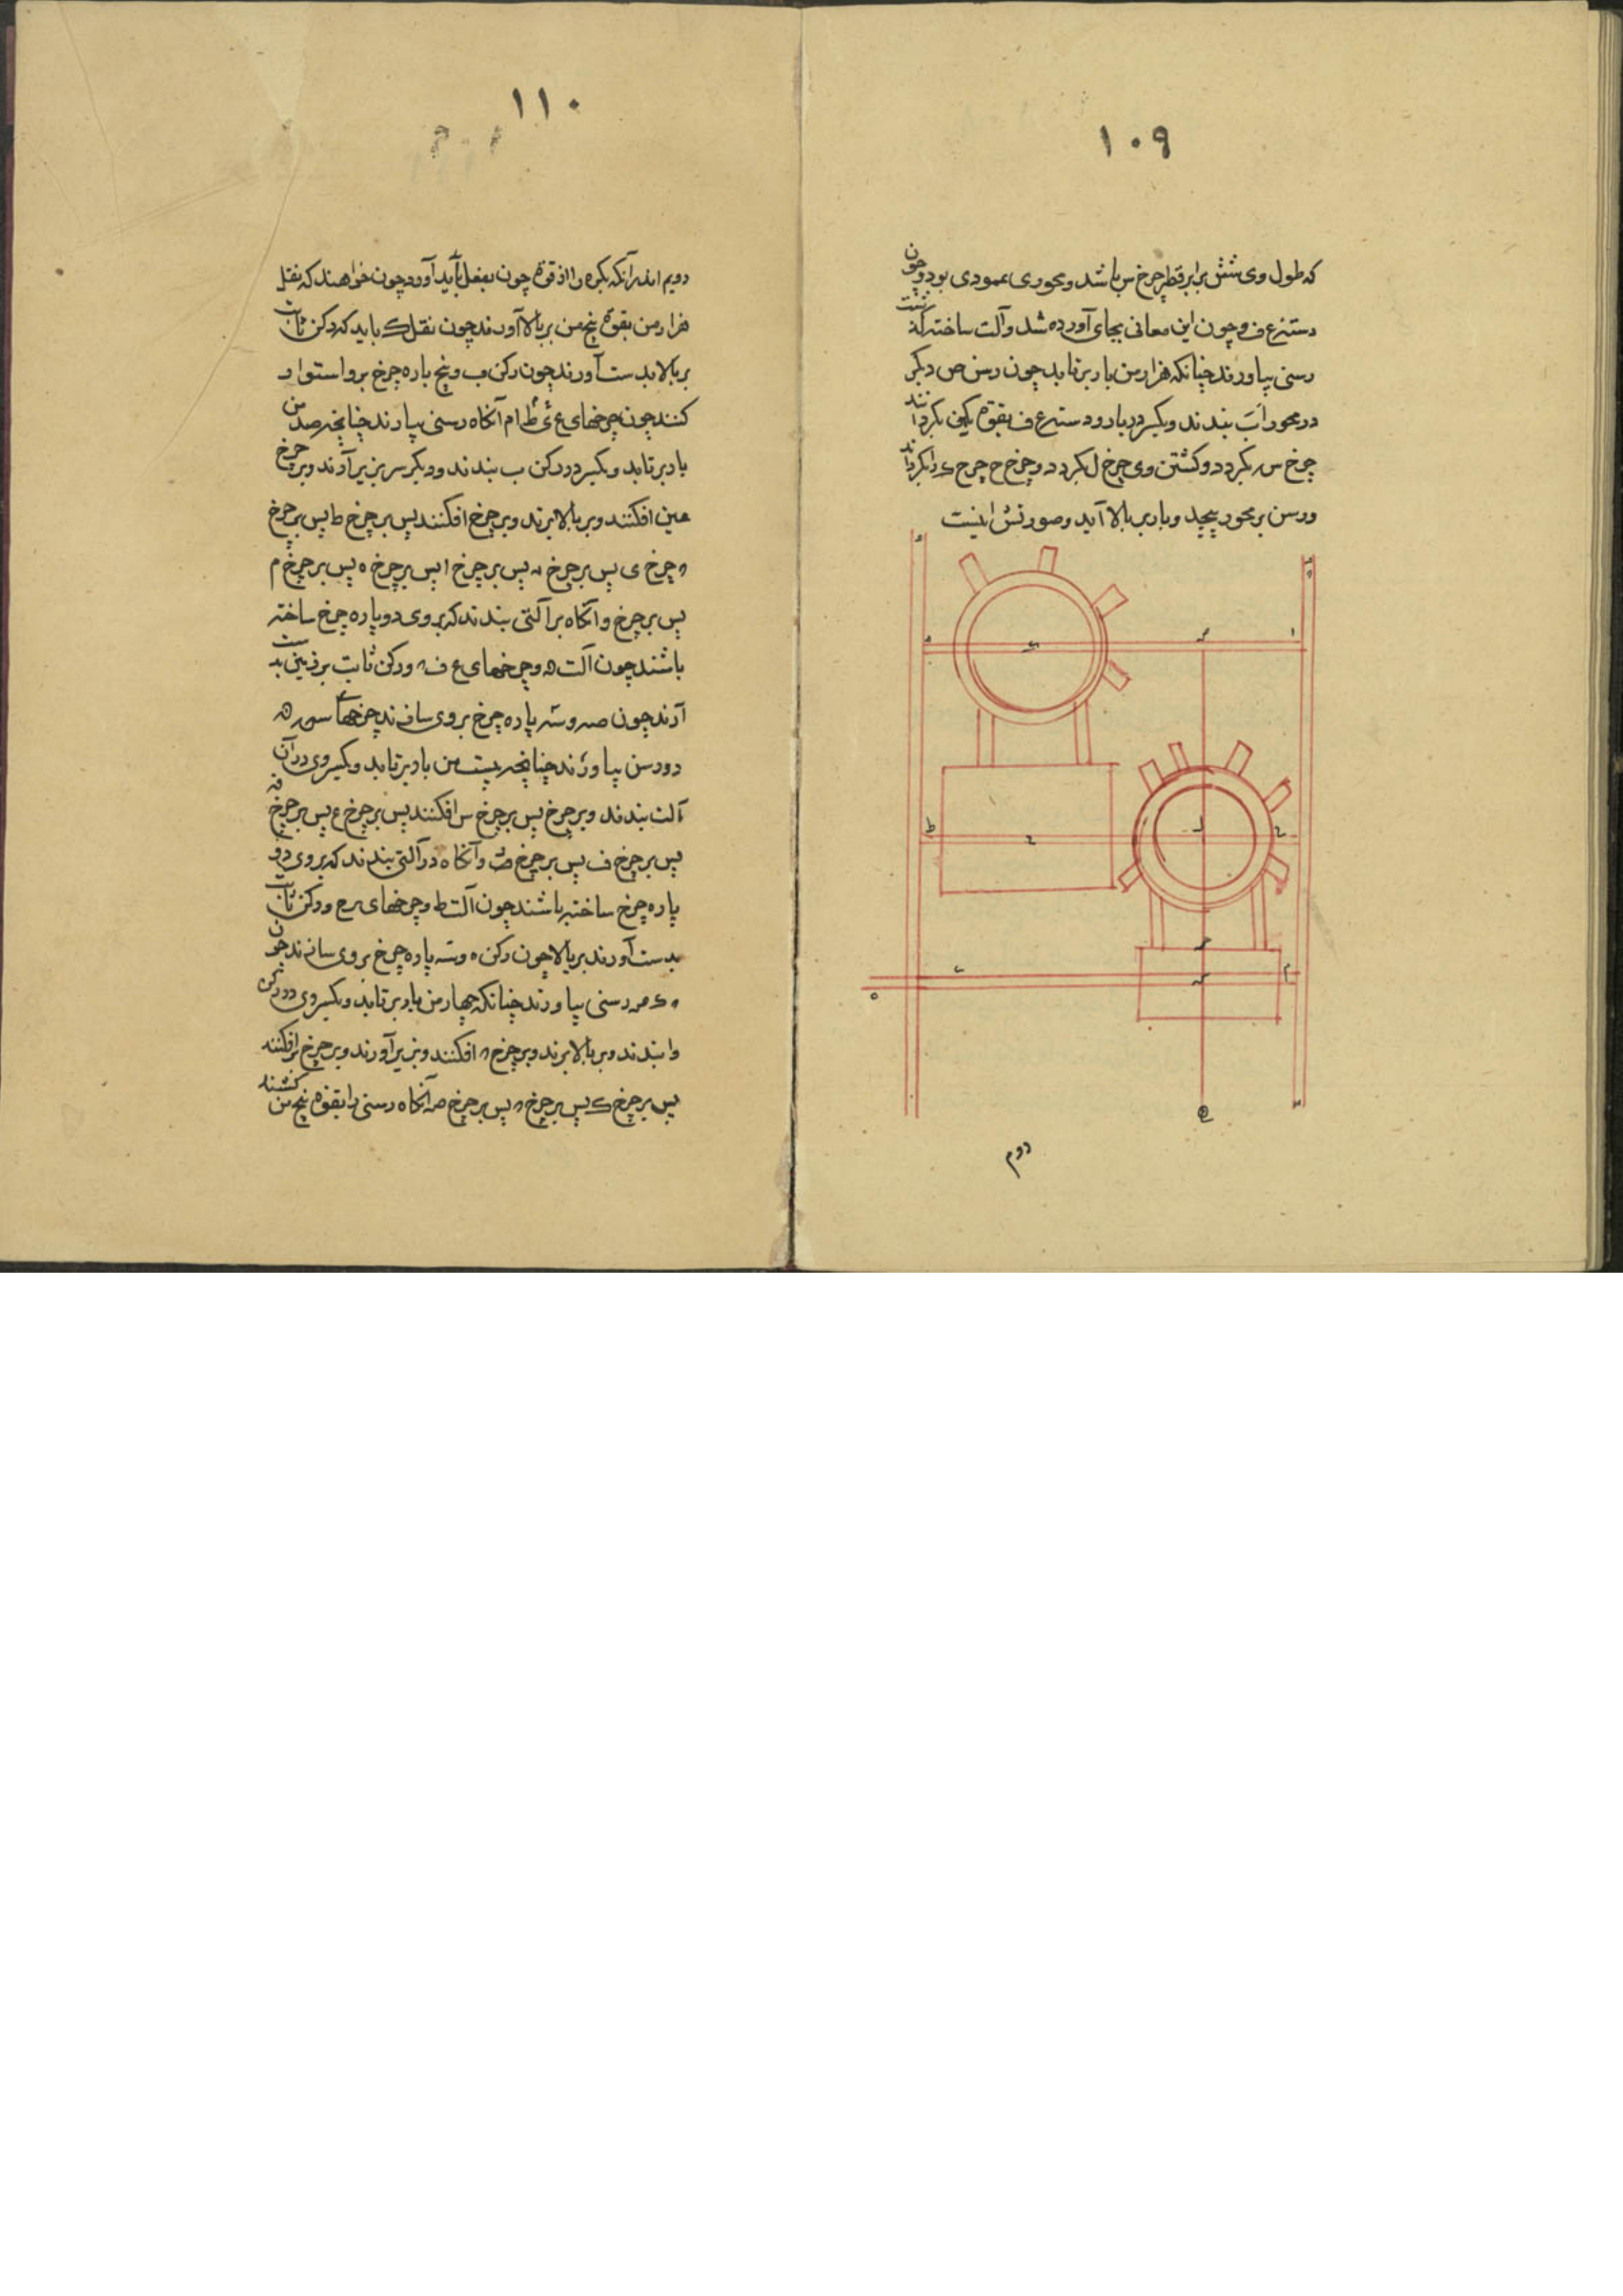 ١٠٩
که طول وی شش برابر قطر چرخ س باشد و محوری عمودی بود و چون
دسته ع ف و چون این معانی بجای آورده شد و آلت ساخته گشت
رسنی بیاورند چنانکه هزار من بار برتابد چون رسن ص دیگر
در محور اب بندند و یکسر در بار و دسته ع ف بقوة یکی بگردانند
چرخ س بگردد و گشتن وی چرخ ل بگردد و چرخ ح چرخ ی را بگرداند
ورسن بر محور پیچد و بار بر بالا آید و صورتش اینست
دوم
١١٠
دویم اندر آنکه بکره را از قوة چون بفعل باید آورد چون خواهند که نقل
هزار من بقوة پنج من بر بالا آورند چون نقل ک باید که رکن ثابت
بر بالا بدست آورند چون رکن ب و پنج پاره چرخ برو استوار
کنند چون چرخهای آنگاه رسنی بیارند چنانچه صد من
بار برتابد و یکسر در رکن ب بندند و دیگر سر بزیر آرند و بر چرخ
افکنند و بر بالا برند و بر چرخ افکنند پس بر چرخ ط پس بر چرخ
چرخ ی پس بر چرخ پس بر چرخ ا پس بر چرخ ه پس بر چرخ م
پس بر چرخ و آنگاه بر آلتی بندند که بر وی دو پاره چرخ ساخته
باشند چون آلت و چرخهای ع ف و رکن ثابت بر زمین بدست
آرند چون و سه پاره چرخ بر وی سازند چرخهای
و رسن بیاورند چنانچه بیست من بار برتابد و یکسر وی در آن
آلت بندند و بر چرخ پس بر چرخ س افکنند پس بر چرخ ع پس بر چرخ
پس بر چرخ ف پس بر چرخ و آنگاه در آلتی بندند که بر وی دو
پاره چرخ ساخته باشند چون آلت ط و چرخهای و رکن ثابت
بدست آورند بر بالا چون رکن ه و سه پاره چرخ بر وی سازند چون
رسنی بیاورند چنانکه چهار من بار برتابد و یکسر وی در رکن
وا بندند و بر بالا برند و بر چرخ افکنند و بزیر آورند و بر چرخ افکنند
پس بر چرخ ک پس بر چرخ پس بر چرخ آنگاه رسنی را بقوة پنج من کشند